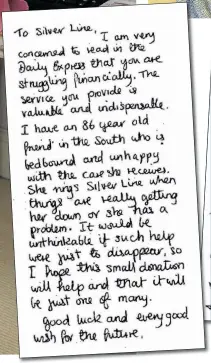 To Silver Line,
I am very
concerned to read in the
Daily Express that you are
struggling financially. The
service you provide is
valuable and indispensable.
I have an 86 year old
friend in the South who is
bedbound and unhappy
with the care she receives.
She rings Silver Line when
things are really getting
her down or she has a
problem. It would be
unthinkable if such help
were just to disappear, so
I hope this small donation
will help and that it will
be just one of many.
Good luck and every good
wish for the future.